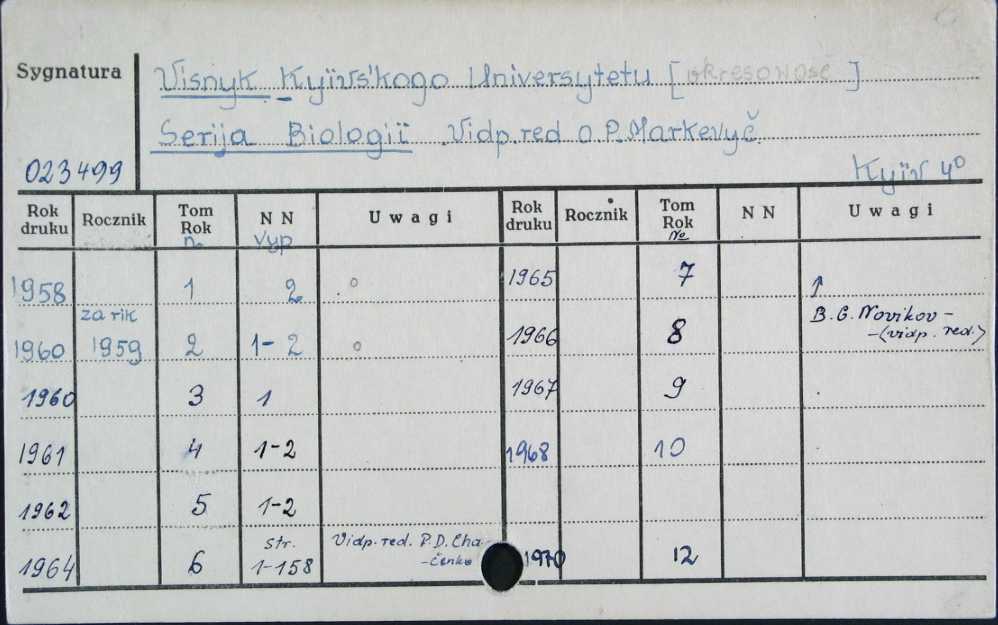 Sygnatura
Visnyk Kyïvs'kogo Universytetu [okresowość]
Serija Biologiï Vidp.red O.P.Markevyč
023499
Kyïv 4°
Rok druku Rocznik Tom Rok n. NN vyp Uwagi Rok druku Rocznik Tom Rok № NN Uwagi
1958 1 2 ○ 1965 7 ↑
za rik B.G.Novikov -
1960 1959 2 1-2 ○ 1966 8 -(vidp. red.)
1960 3 1 1967 9
1961 4 1-2 1968 10
1962 5 1-2
str. Vidp.red. P.D.Cha-
1964 6 1-158 -čenko 1970 12